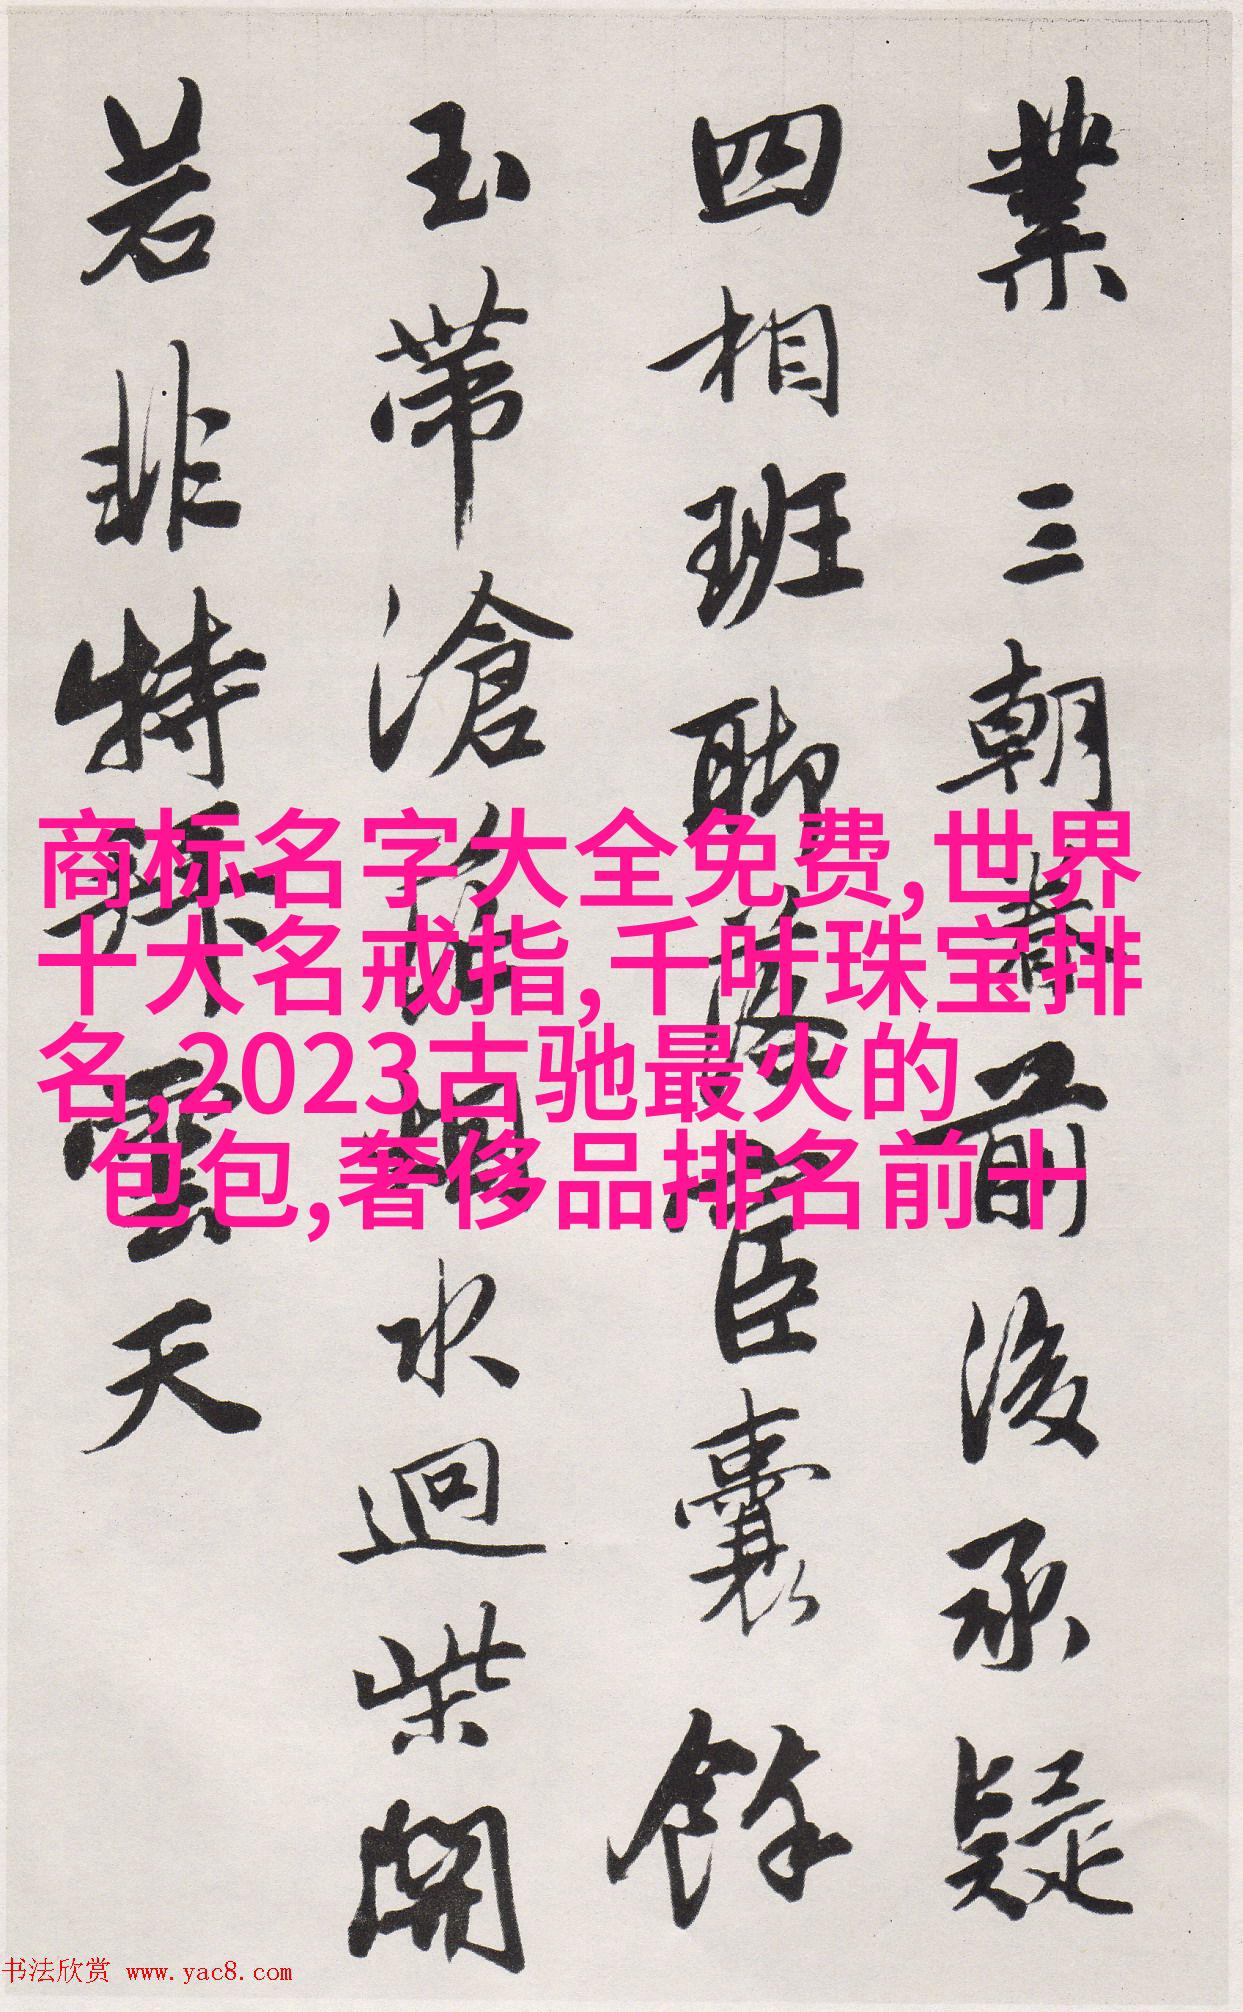 業三朝前後承疑
四相班臣囊餘
玉帶滄水迴柴開
若非特雲天
商标名字大全免费,世界
十大名戒指,千叶珠宝排
名,2023古驰最火的
包包,奢侈品排名前十
书法欣赏 www.yac8.com